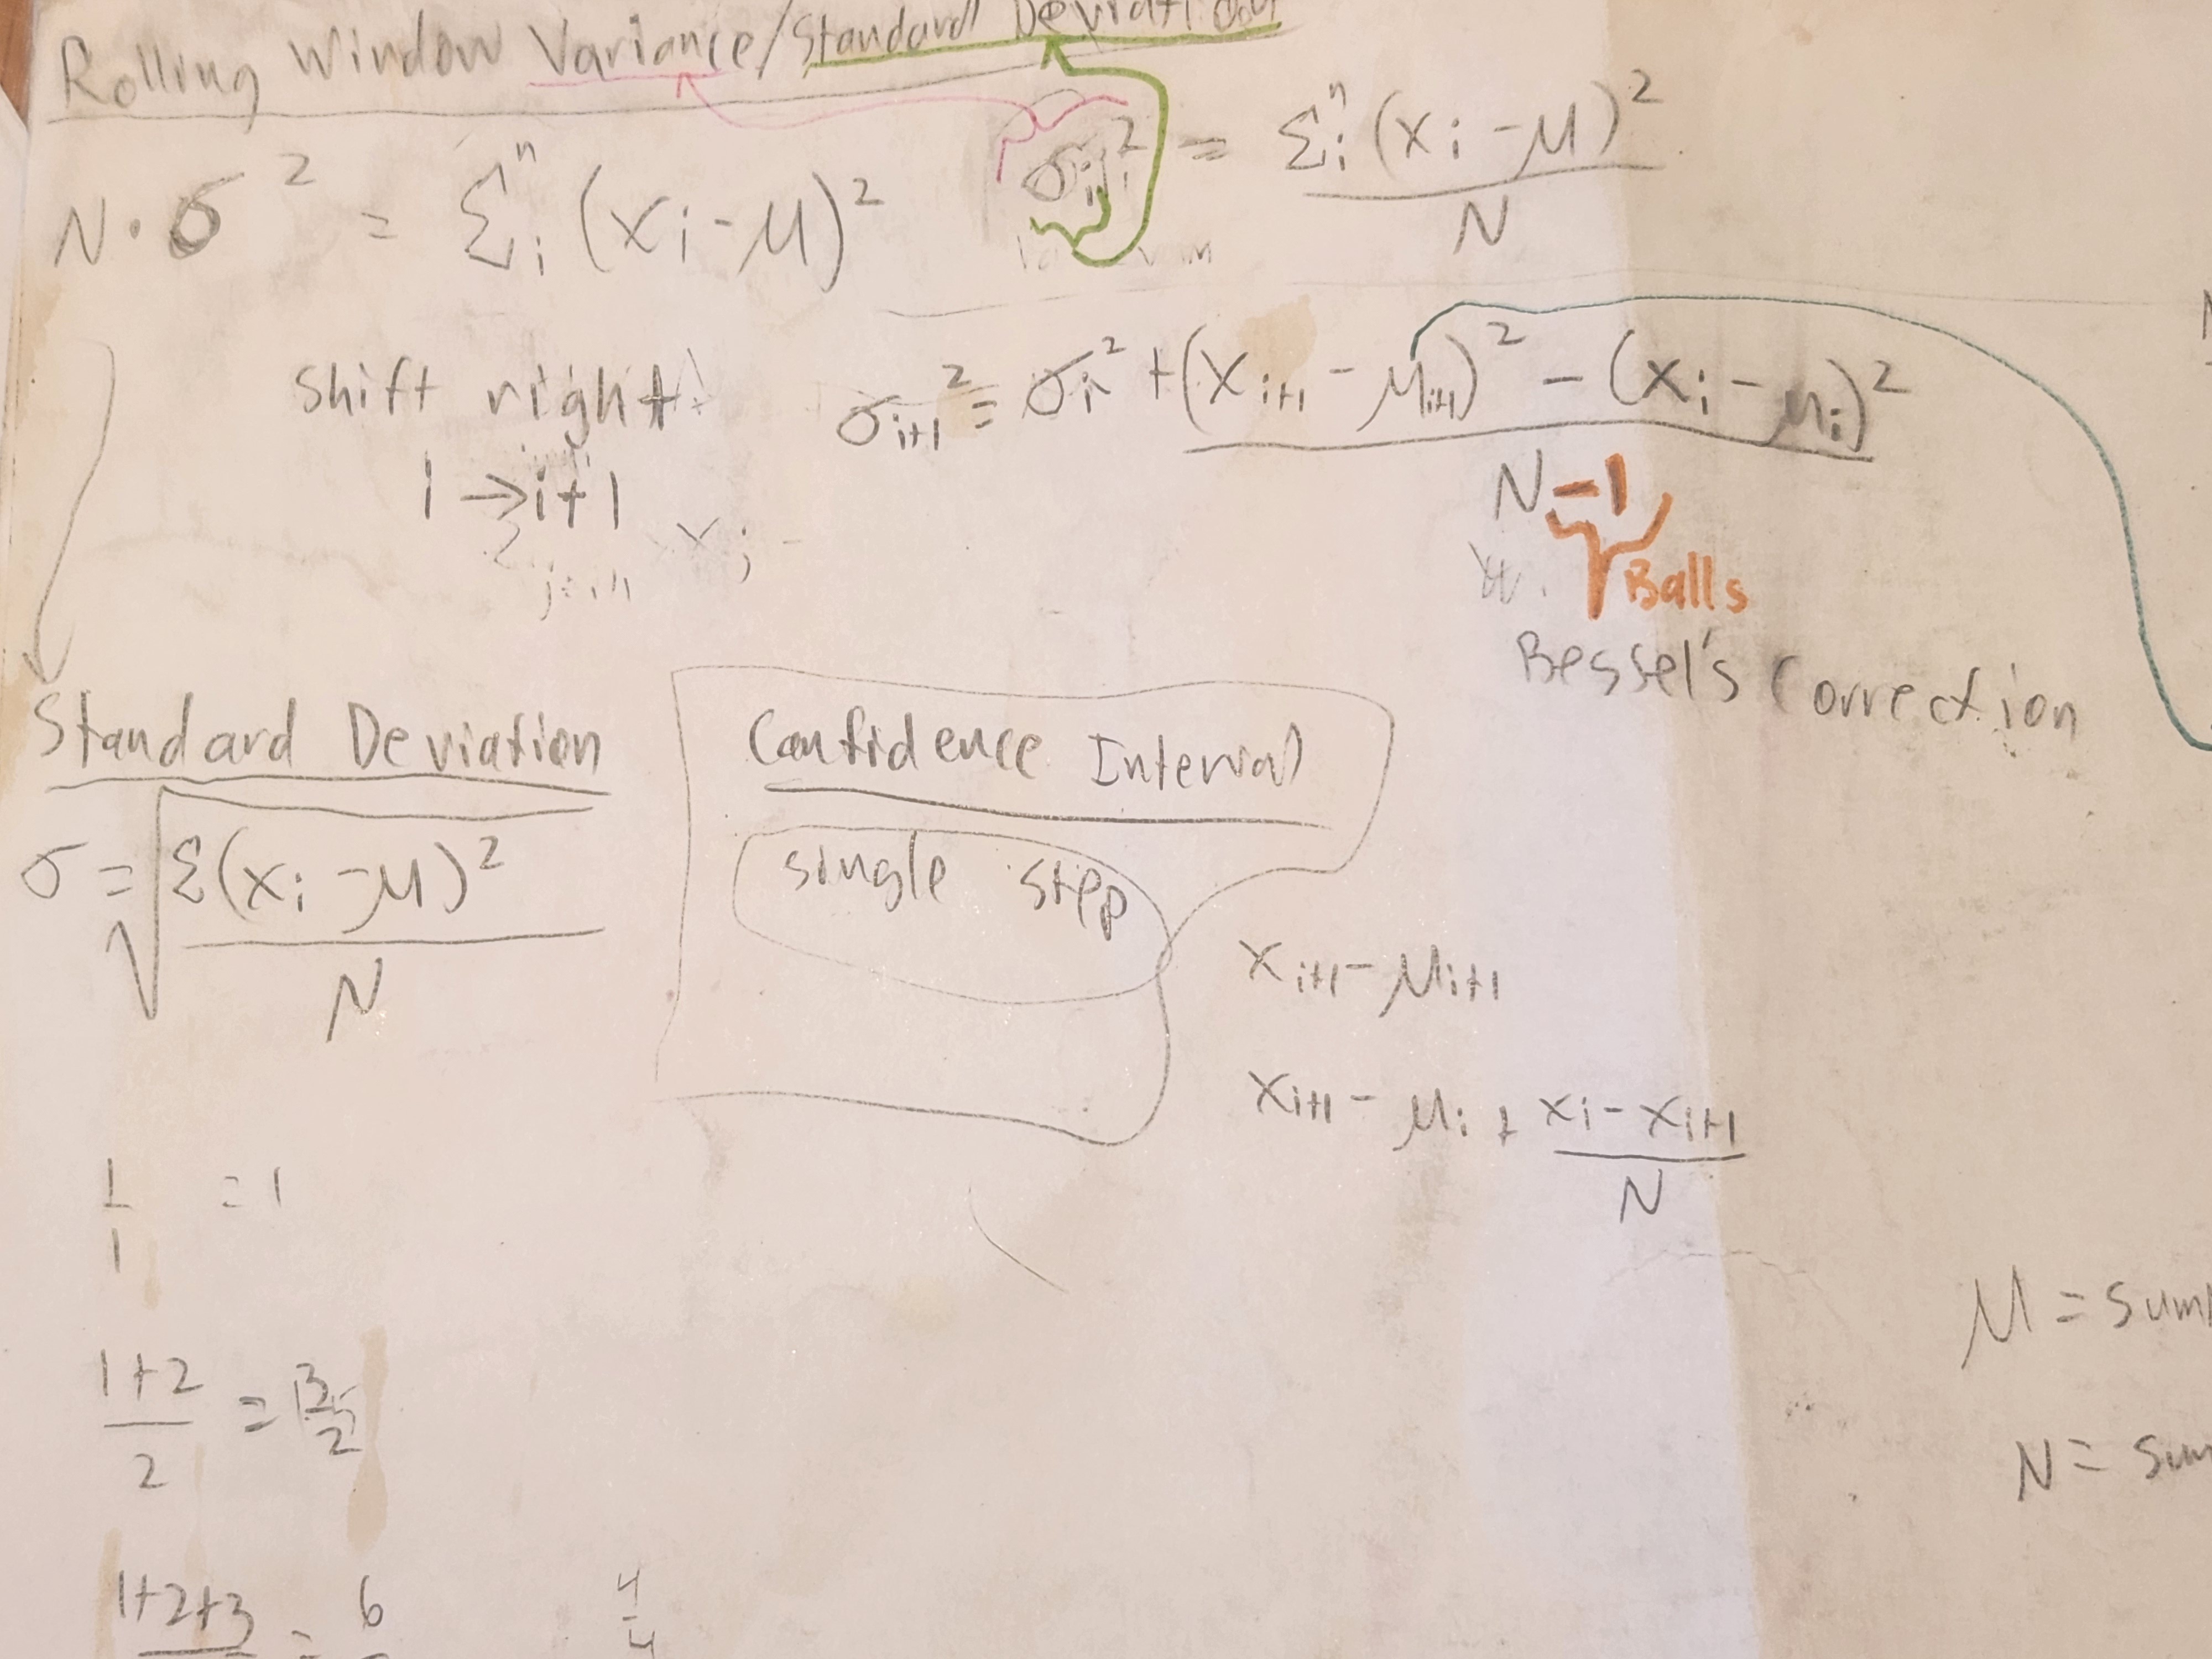 Rolling Window Variance/Standard Deviation
N · σ² = Σᵢⁿ (xᵢ - μ)²
σᵢ² = Σᵢⁿ (xᵢ - μ)² / N
shift right
i → i+1
xⱼ -
σᵢ₊₁² = σᵢ² + (xᵢ₊₁ - μᵢ₊₁)² - (xᵢ - μᵢ)² / N - 1
Balls
Bessel's Correction
Standard Deviation
σ = √(Σ(xᵢ - μ)² / N)
Confidence Interval
single step
xᵢ₊₁ - μᵢ₊₁
xᵢ₊₁ - μᵢ + xᵢ - xᵢ₊₁ / N
1/1 = 1
μ = sum
1+2 / 2 = 3/2
N = sum
1+2+3 = 6
4/4